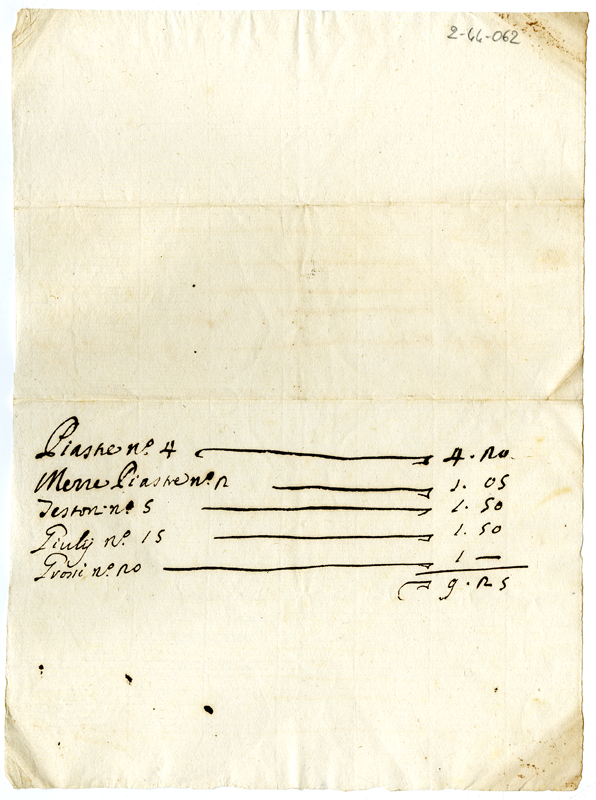 2-44-062
Piastre nº. 4 4.20
Mezze Piastre nº. 2 1.05
Teston: nº. 5 1.50
Giulij nº. 15 1.50
Grossi nº. 20 1 —
9.25